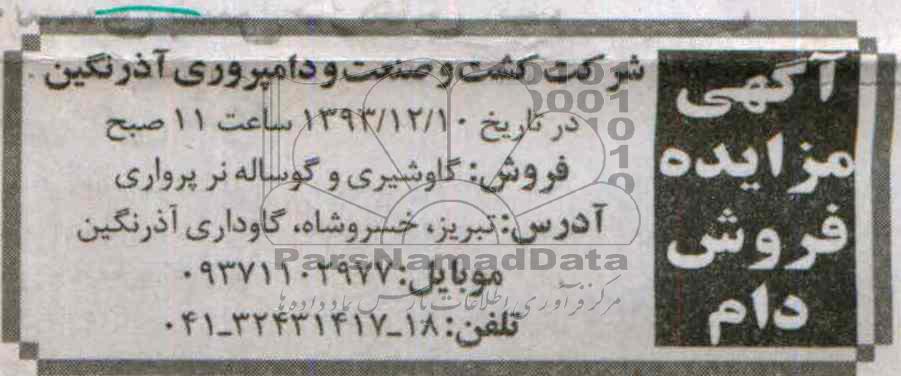 آگهی
مزایده
فروش
دام
شرکت کشت و صنعت و دامپروری آذرنگین
در تاریخ ۱۳۹۳/۱۲/۱۰ ساعت ۱۱ صبح
فروش: گاوشیری و گوساله نر پرواری
آدرس: تبریز، خسروشاه، گاوداری آذرنگین
موبایل: ۰۹۳۷۱۱۰۲۹۷۷
تلفن: ۱۸-۳۲۴۳۱۴۱۷-۰۴۱
ParsNamadData
مرکز فرآوری اطلاعات پارس نماد داده ها